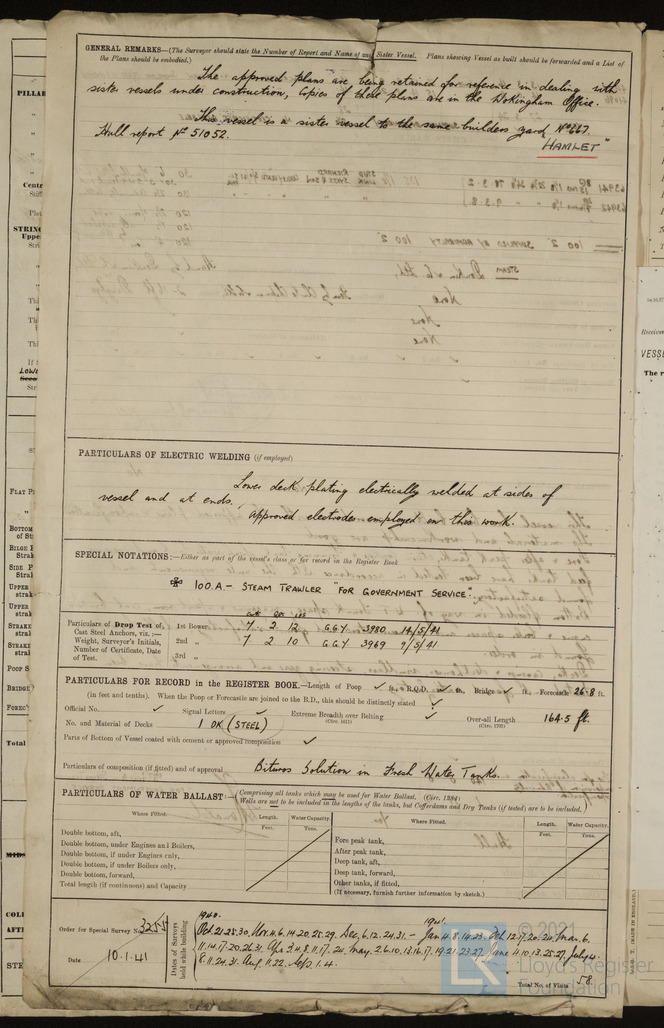 GENERAL REMARKS—(The Surveyor should state the Number of Report and Name of any Sister Vessel. Plans showing Vessel as built should be forwarded and a List of
the Plans should be embodied.)
The approved plans are being retained for reference in dealing with
sister vessels under construction, Copies of these plans are in the Wokingham Office.
This vessel is a sister vessel to the same builders yard No 667.
"HAMLET"
Hull report No 51052.
PARTICULARS OF ELECTRIC WELDING (if employed)
Lower deck plating electrically welded at sides of
vessel and at ends.
Approved electrodes employed on this work.
SPECIAL NOTATIONS:—Either as part of the vessel's class or for record in the Register Book
✠ 100.A.— STEAM TRAWLER "FOR GOVERNMENT SERVICE".
Particulars of Drop Test of, Cast Steel Anchors, viz.:— Weight, Surveyor's Initials, Number of Certificate, Date of Test.
Cwt Qrs lbs
1st Bower 7 2 12 G.G.Y 3980 14/5/41
2nd " 7 2 10 G.G.Y 3969 9/5/41
3rd "
PARTICULARS FOR RECORD in the REGISTER BOOK.—Length of Poop ✓ ft. R.Q.D. ✓ ft. Bridge ✓ ft. Forecastle 26·8 ft.
(in feet and tenths). When the Poop or Forecastle are joined to the B.D., this should be distinctly stated ✓
Official No. ✓ Signal Letters ✓ Extreme Breadth over Belting (Circ. 1611) ✓ Over-all Length (Circ. 1703) 164·5 ft.
No. and Material of Decks 1 DK (STEEL)
Parts of Bottom of Vessel coated with cement or approved composition ✓
Particulars of composition (if fitted) and of approval Bituros Solution in Fresh Water Tanks.
PARTICULARS OF WATER BALLAST:—(Comprising all tanks which may be used for Water Ballast. (Circ. 1284)
Wells are not to be included in the lengths of the tanks, but Cofferdams and Dry Tanks (if tested) are to be included.)
Where Fitted. Length. Feet. Water Capacity. Tons. Where Fitted. Length. Feet. Water Capacity. Tons.
Double bottom, aft, Fore peak tank,
Double bottom, under Engines and Boilers, After peak tank,
Double bottom, if under Engines only, Deep tank, aft,
Double bottom, if under Boilers only, Deep tank, forward,
Double bottom, forward, Other tanks, if fitted,
Total length (if continuous) and Capacity (If necessary, furnish further information by sketch.)
Order for Special Survey No. 3255
Date 10·1·41
Dates of Surveys held while building
1940. Oct 21.25.30. Nov. 4.6.14.20.25.29. Dec. 6.12.24.31. — 1941 Jan 4.8.14.23. Feb. 12.17.20.24. Mar. 6.
11.14.17.20.26.31. Apr. 3.4.8.11.17. 24. May. 2.6.10.13.16.17.19.21.23.27. June 4.10.13.25.27. July 4.
8.11.24.31. Aug. 11.22. Sep. 1.4.
Total No. of Visits 58.
© 2021
Lloyd's Register
Foundation